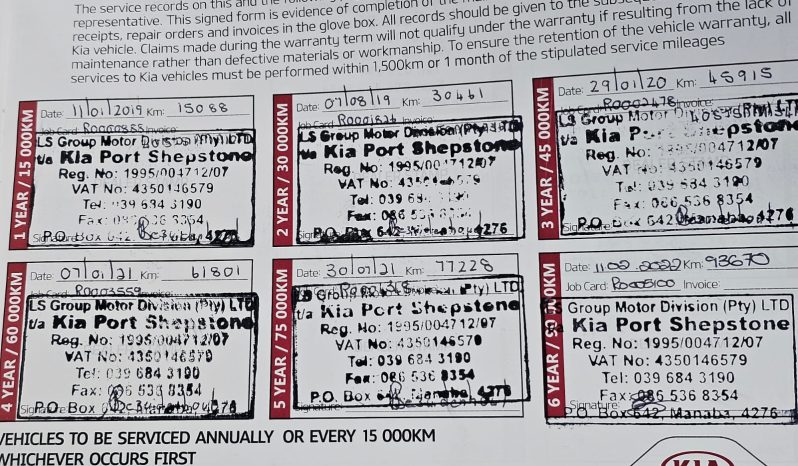 The service records on this and the
representative. This signed form is evidence of completion of the
receipts, repair orders and invoices in the glove box. All records should be given to the
Kia vehicle. Claims made during the warranty term will not qualify under the warranty if resulting from the lack of
maintenance rather than defective materials or workmanship. To ensure the retention of the vehicle warranty, all
services to Kia vehicles must be performed within 1,500km or 1 month of the stipulated service mileages
1 YEAR / 15 000KM
Date: 11/01/2019 Km: 15088
Job Card: R0000855 Invoice:
LS Group Motor Division (Pty) LTD
t/a Kia Port Shepstone
Reg. No: 1995/004712/07
VAT No: 4350146579
Tel: 039 684 3190
Fax: 086 536 8354
P.O. Box 642,
4276
Signature:
2 YEAR / 30 000KM
Date: 07/08/19 Km: 30461
Job Card: Invoice:
LS Group Motor Division (Pty) LTD
t/a Kia Port Shepstone
Reg. No: 1995/004712/07
VAT No:
Tel: 039 684
Fax: 086 536
P.O. Box 642 4276
3 YEAR / 45 000KM
Date: 29/01/20 Km: 45915
Job Card: R0002478 Invoice:
LS Group Motor
t/a Kia Port Shepstone
Reg. No: 1995/004712/07
VAT No: 4350146579
Tel: 039 684 3190
Fax: 086 536 8354
P.O. Box 642 4276
Signature:
4 YEAR / 60 000KM
Date: 07/01/21 Km: 61801
Job Card: R0003559 Invoice:
LS Group Motor Division (Pty) LTD
t/a Kia Port Shepstone
Reg. No: 1995/004712/07
VAT No: 4350146579
Tel: 039 684 3190
Fax: 086 536 8354
P.O. Box
Signature:
5 YEAR / 75 000KM
Date: 30/07/21 Km: 77228
LS Group Motor Division (Pty) LTD
t/a Kia Port Shepstone
Reg. No: 1995/004712/07
VAT No: 4350146579
Tel: 039 684 3190
Fax: 086 536 8354
P.O. Box 642, Manaba, 4276
Signature:
6 YEAR / 90 000KM
Date: 11 02 2022 Km: 93670
Job Card: R0005100 Invoice:
LS Group Motor Division (Pty) LTD
t/a Kia Port Shepstone
Reg. No: 1995/004712/07
VAT No: 4350146579
Tel: 039 684 3190
Fax: 086 536 8354
Signature:
P.O. Box 642, Manaba, 4276
VEHICLES TO BE SERVICED ANNUALLY OR EVERY 15 000KM
WHICHEVER OCCURS FIRST
KIA